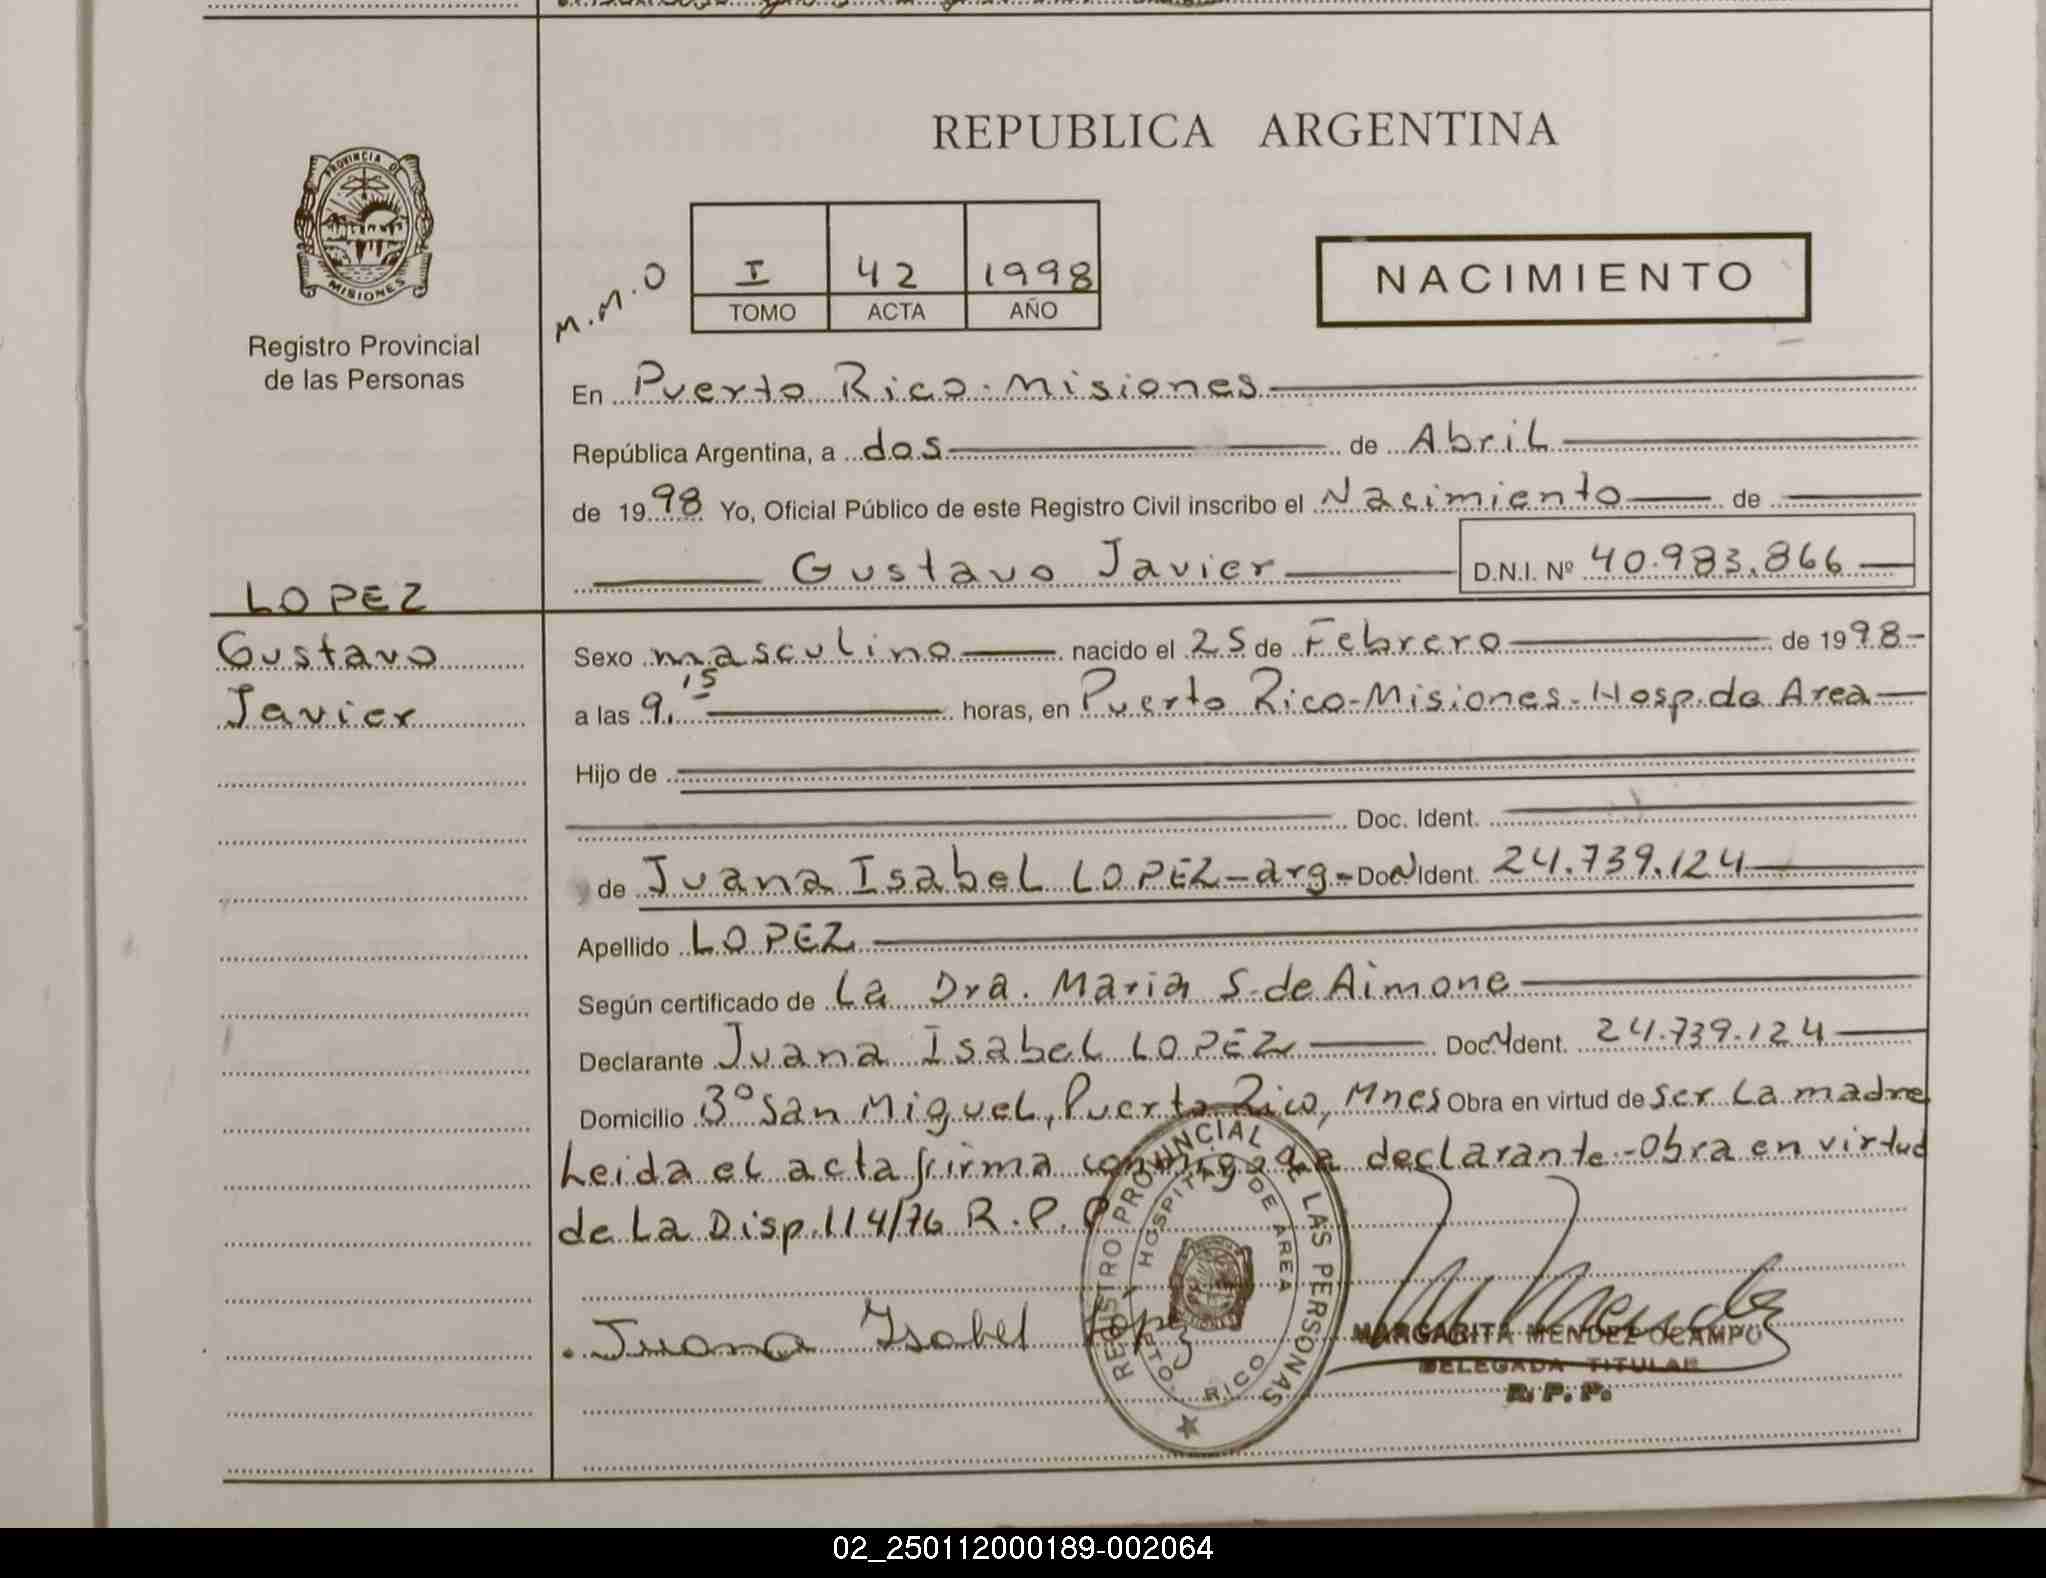 REPUBLICA ARGENTINA
PROVINCIA DE
MISIONES
Registro Provincial
de las Personas
M.M.O
I 42 1998
TOMO ACTA AÑO
NACIMIENTO
En Puerto Rico-Misiones
República Argentina, a dos de Abril
de 1998 Yo, Oficial Público de este Registro Civil inscribo el Nacimiento de
Gustavo Javier D.N.I. Nº 40.983.866
LOPEZ
Gustavo
Javier
Sexo masculino nacido el 25 de Febrero de 1998-
a las 9,15 horas, en Puerto Rico-Misiones-Hosp.de Area
Hijo de
Doc. Ident.
y de Juana Isabel LOPEZ-arg-Doc. Ident. 24.739.124
Apellido LOPEZ
Según certificado de La Dra. Maria S. de Aimone
Declarante Juana Isabel LOPEZ Doc. Ident. 24.739.124
Domicilio Bº San Miguel, Puerto Rico, Mnes Obra en virtud de ser La madre
Leida el acta firma conmigo La declarante-Obra en virtud
de La Disp.114/76 R.P.P
REGISTRO PROVINCIAL DE LAS PERSONAS
HOSPITAL DE AREA
PTO. RICO
Juana Isabel Lopez
M Mendez
MARGARITA MENDEZ OCAMPO
DELEGADA TITULAR
R.P.P.
02_250112000189-002064